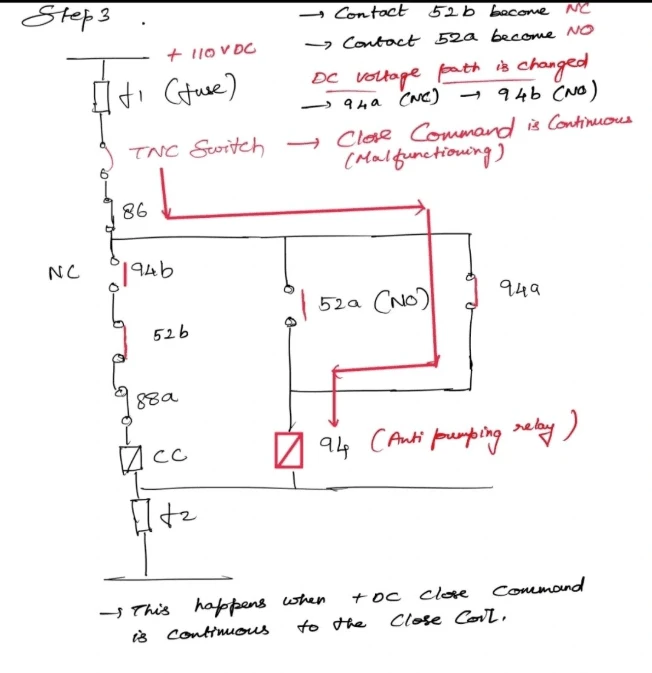 Step 3 .
→ Contact 52b become NC
→ Contact 52a become NO
+ 110 V DC
DC voltage path is changed
→ 94a (NC) → 94b (NO)
f1 (fuse)
TNC Switch → Close Command is Continuous
(Malfunctioning)
86
NC 94b
52a (NO)
94a
52b
88a
CC
94 (Anti pumping relay)
f2
→ This happens when + DC close Command
is continuous to the Close Coil.